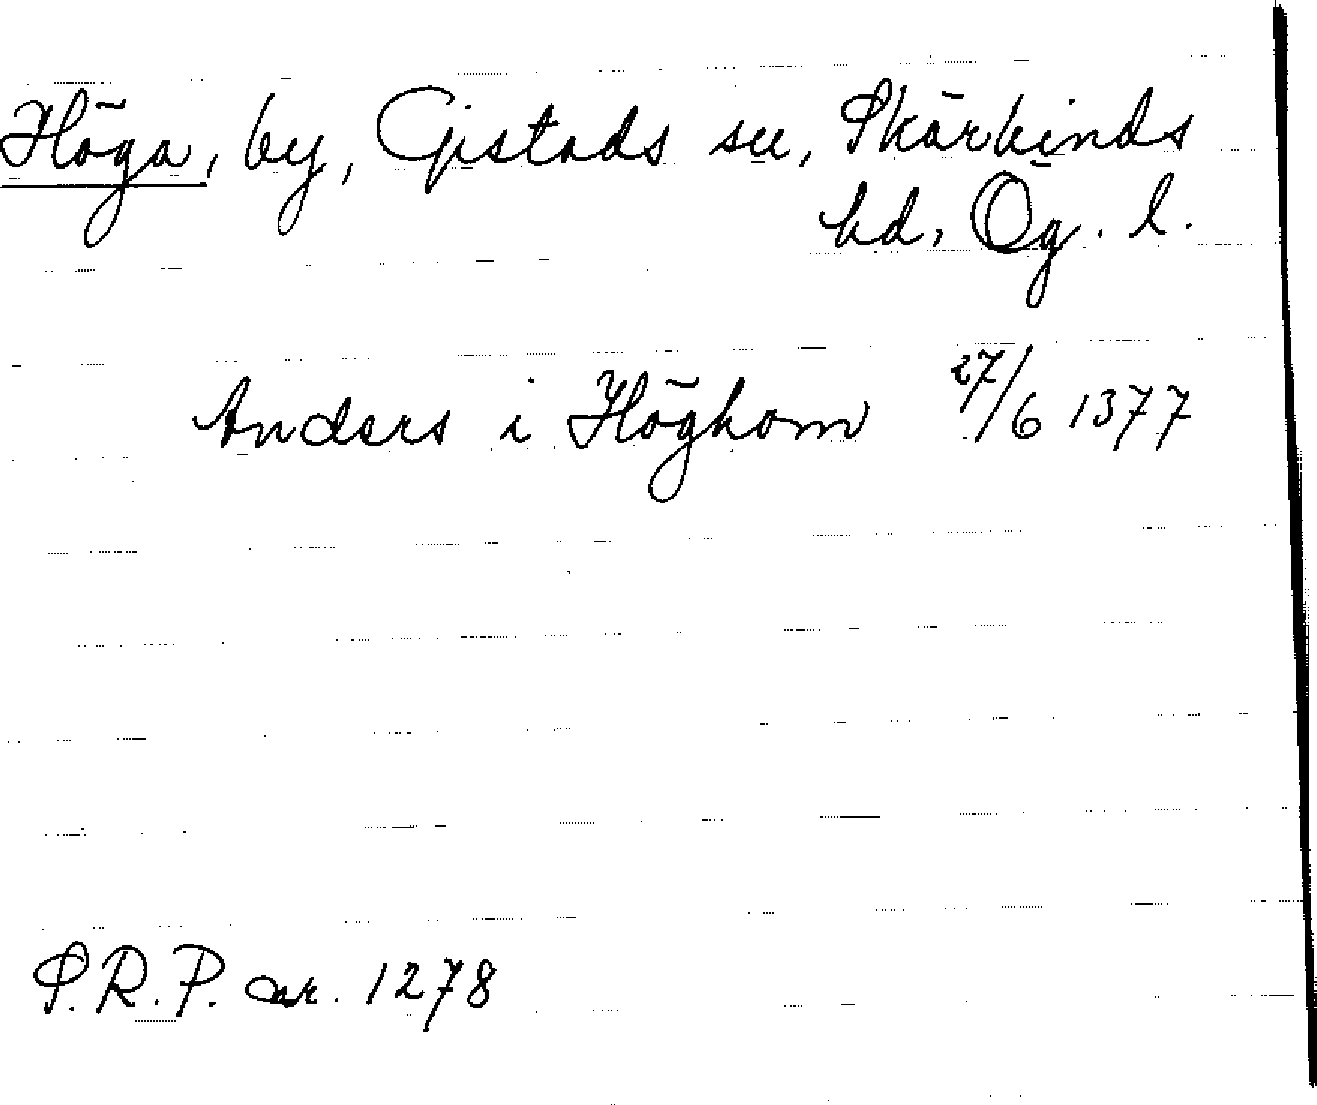 Höga, by, Gistads sn, Skärkinds
hd, Ög. l.
Anders i Höghom 27/6 1377
S.R.P. nr. 1278